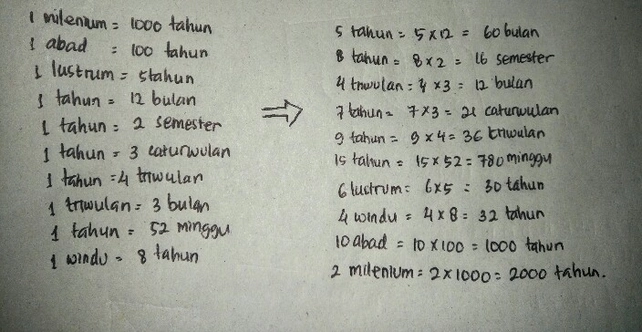 1 milenium = 1000 tahun
1 abad = 100 tahun
1 lustrum = 5tahun
1 tahun = 12 bulan
1 tahun = 2 semester
1 tahun = 3 caturwulan
1 tahun = 4 triwulan
1 triwulan = 3 bulan
1 tahun = 52 minggu
1 windu = 8 tahun
⇒
5 tahun = 5 x 12 = 60 bulan
8 tahun = 8 x 2 = 16 semester
4 triwulan = 4 x 3 = 12 bulan
7 tahun = 7 x 3 = 21 caturwulan
9 tahun = 9 x 4 = 36 triwulan
15 tahun = 15 x 52 = 780 minggu
6 lustrum = 6 x 5 = 30 tahun
4 windu = 4 x 8 = 32 tahun
10 abad = 10 x 100 = 1000 tahun
2 milenium = 2 x 1000 = 2000 tahun.